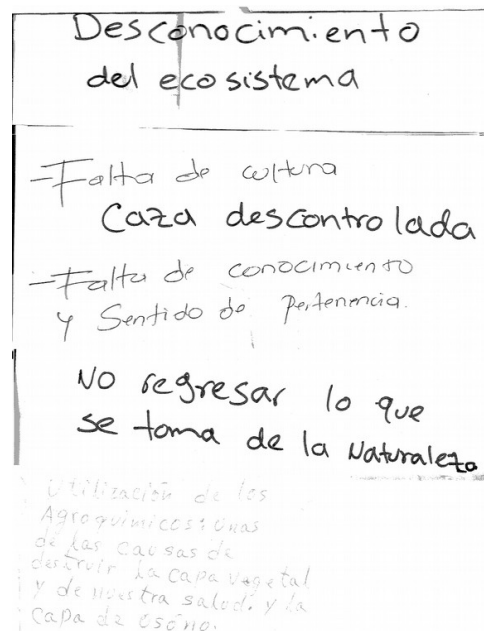 Desconocimiento
del ecosistema
-Falta de cultura
Caza descontrolada
-Falta de conocimiento
y Sentido de Pertenencia.
No regresar lo que
se toma de la Naturaleza
Utilización de los
Agroquimicos: unas
de las causas de
destruir la capa vegetal
y de nuestra salod. y la
capa de osono.